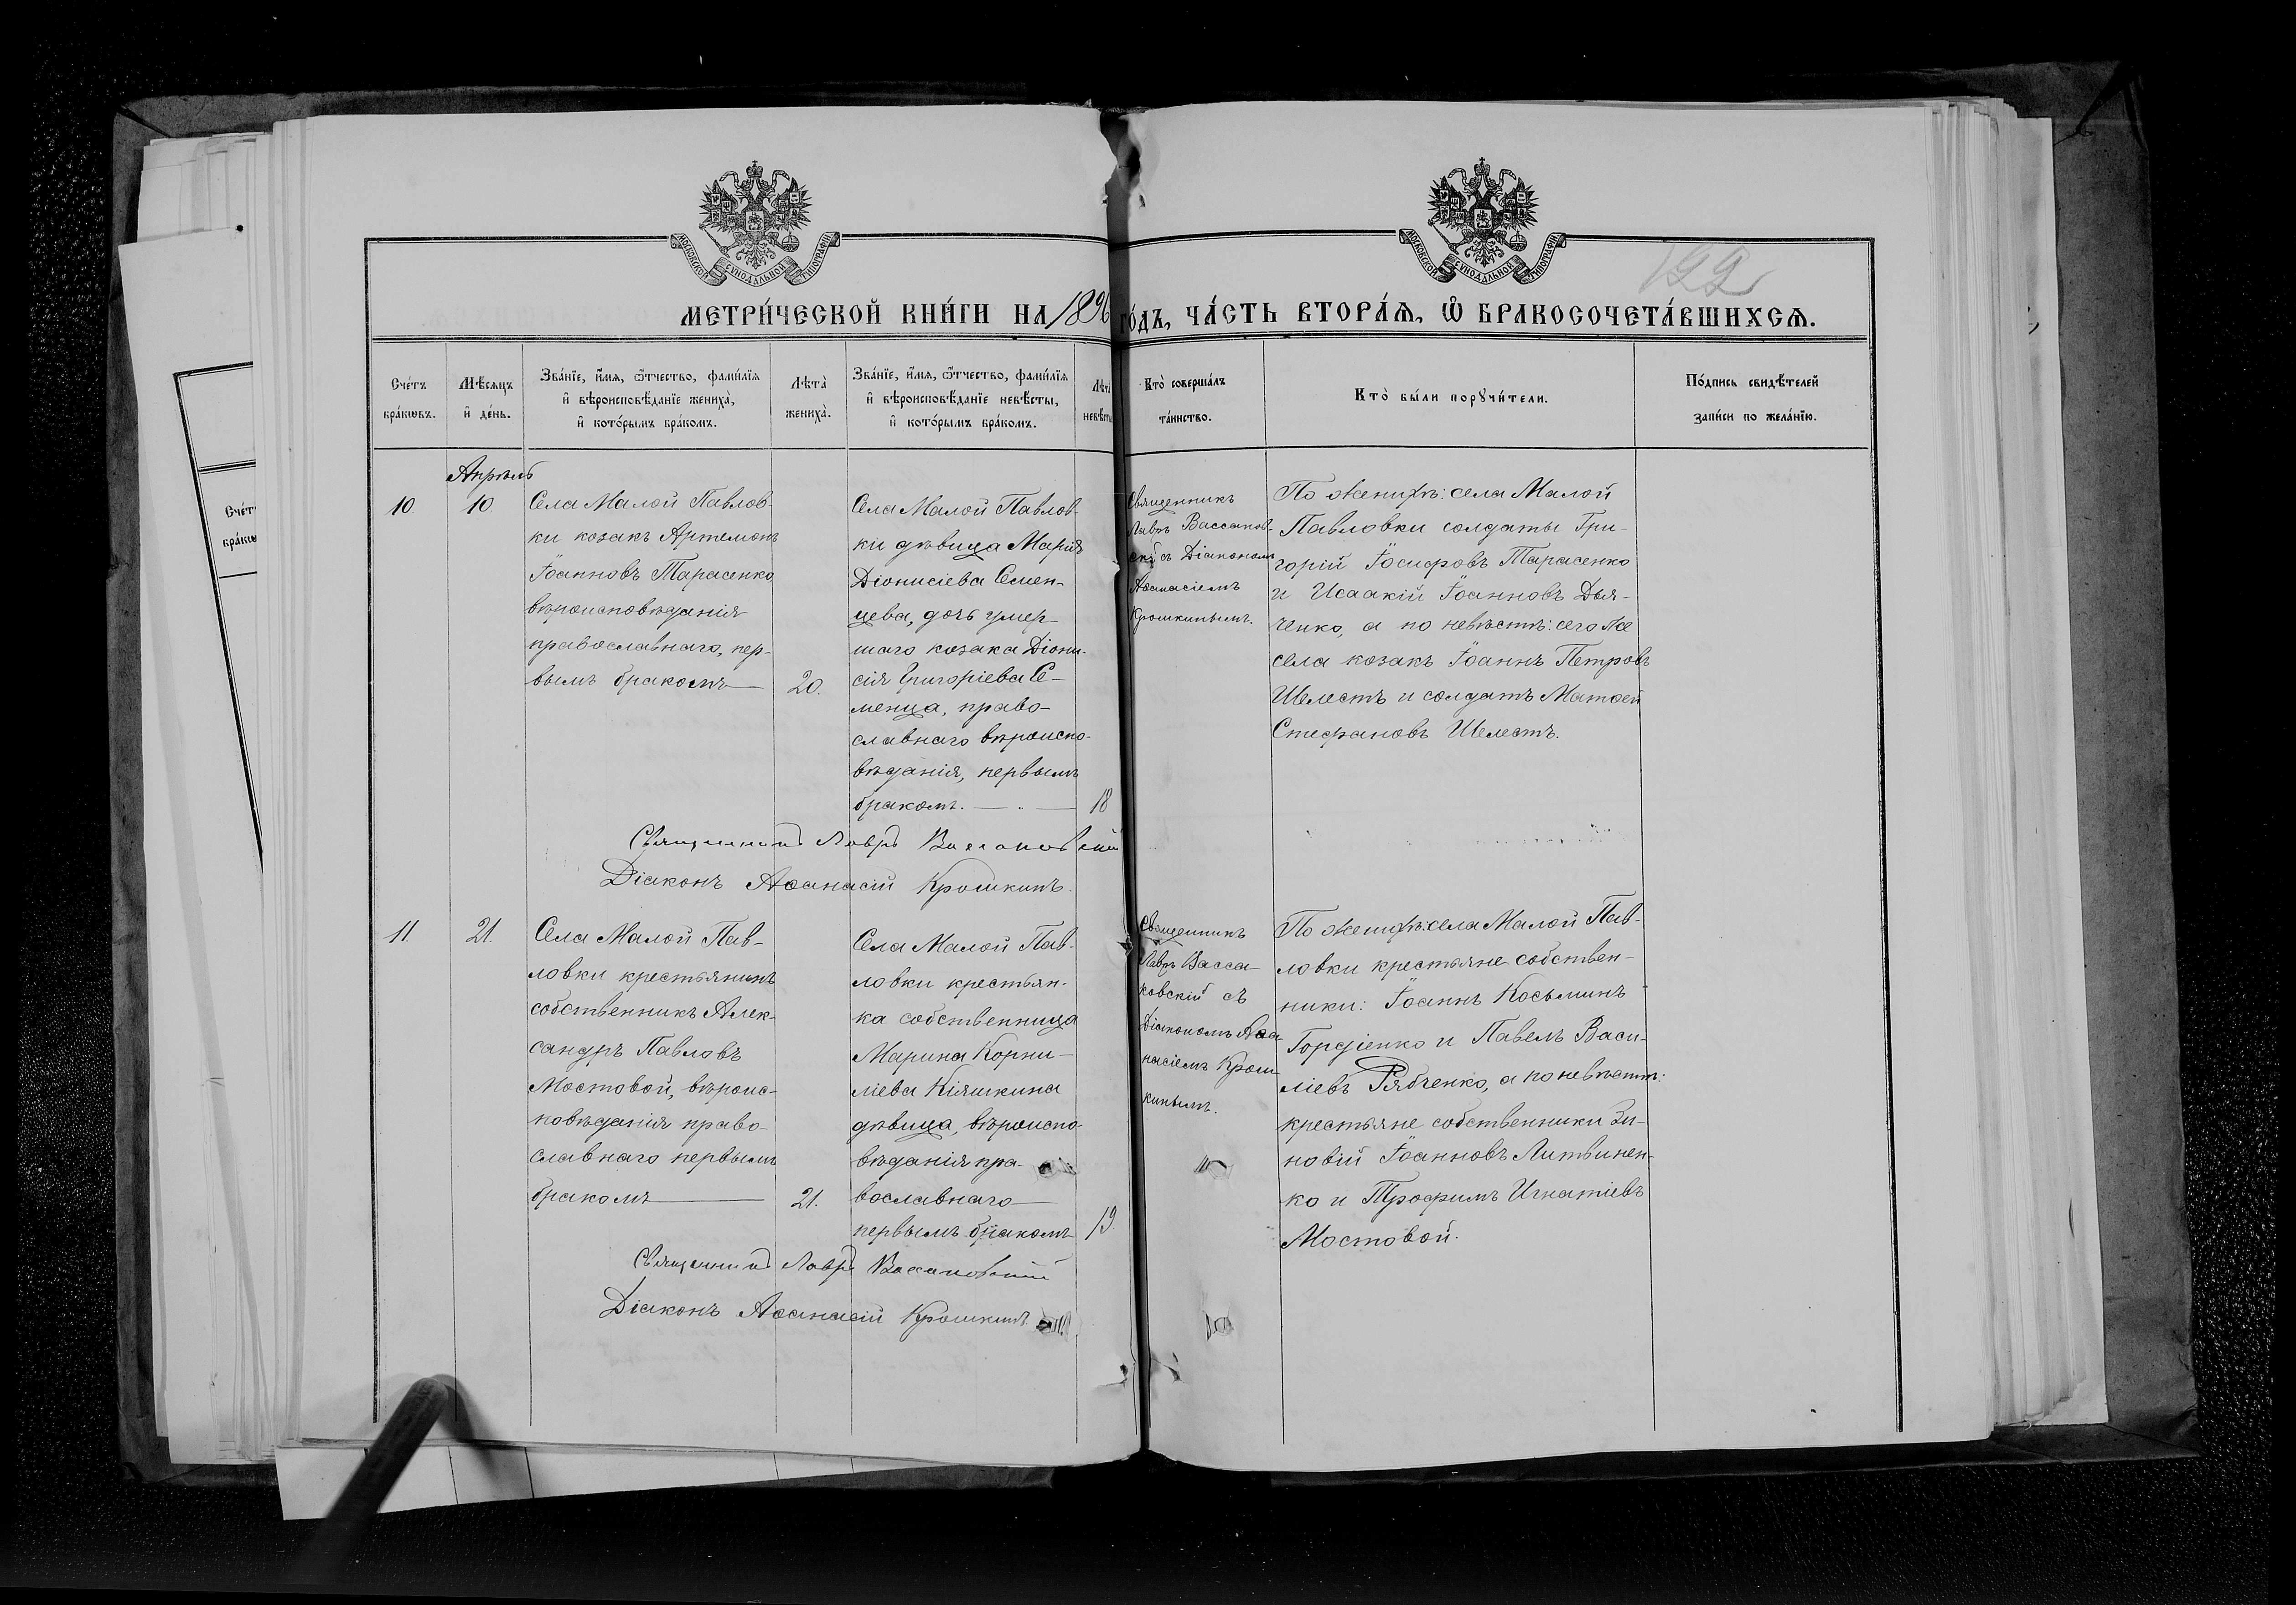 МОСКОВСКОЙ СУНОДАЛЬНОЙ ТИПОГРАФІИ
МОСКОВСКОЙ СУНОДАЛЬНОЙ ТИПОГРАФІИ
122
МЕТРИ́ЧЕСКОЙ КНИ́ГИ НА 1896 ГО́ДЪ, ЧА́СТЬ ВТОРА́Ѧ, Ѽ БРАКОСОЧЕТА́ВШИХСѦ.
Сче́тъ
бра́кѡвъ.
Мѣ́сяцъ
и҆ де́нь.
Зва́нїе, и҆́мя, ѻ҆́тчество, фами́лїя
и҆ вѣроисповѣ́данїе жениха̀,
и҆ кото́рымъ бра́комъ.
Лѣта̀
жениха̀.
Зва́нїе, и҆́мя, ѻ҆́тчество, фами́лїя
и҆ вѣроисповѣ́данїе невѣ́сты,
и҆ кото́рымъ бра́комъ.
Лѣта̀
невѣ́сты
Кто̀ соверша́лъ
та́инство.
Кто̀ бы́ли порꙋчи́тели.
По́дпись свидѣ́телей
за́писи по жела́нїю.
Апрѣль
10
10
Села Малой Павлов-
ки козакъ Артемонъ
Іоанновъ Тарасенко
вѣроисповѣданія
православнаго, пер-
вымъ бракомъ
20.
Села Малой Павлов-
ки дѣвица Марія
Діонисіева Семен-
цева, дочь умер-
шаго козака Діони-
сія Григоріева Се-
менца, право-
славнаго вѣроиспо-
вѣданія, первымъ
бракомъ.
18
Священникъ
Лавръ Вассаков-
скій съ Діакономъ
Аѳанасіемъ
Крошкинымъ.
По женихѣ: села Малой
Павловки солдаты Гри-
горій Іосифовъ Тарасенко
и Исаакій Іоанновъ Дья-
ченко, а по невѣстѣ: сего же
села козакъ Іоаннъ Петровъ
Шелестъ и солдатъ Матѳей
Стефановъ Шелестъ.
Священникъ Лавръ Вассаковскій
Діаконъ Аѳанасій Крошкинъ.
11.
21.
Села Малой Пав-
ловки крестьянинъ
собственникъ Алек-
сандръ Павловъ
Мостовой, вѣроис-
повѣданія право-
славнаго первымъ
бракомъ
21.
Села Малой Пав-
ловки крестьян-
ка собственница
Марина Корни-
ліева Кіяшкина
дѣвица, вѣроиспо-
вѣданія пра-
вославнаго
первымъ бракомъ
19
Священникъ
Лавръ Васса-
ковскій съ
Діакономъ Аѳа-
насіемъ Крош-
кинымъ.
По женихѣ: села Малой Пав-
ловки крестьяне собствен-
ники: Іоаннъ Косьминъ
Гордіенко и Павелъ Васи-
ліевъ Рябченко, а по невѣстѣ:
крестьяне собственники Зи-
новій Іоанновъ Литвинен-
ко и Трофимъ Игнатіевъ
Мостовой.
Священникъ Лавръ Вассаковскій
Діаконъ Аѳанасій Крошкинъ
Сче́т
бра́кѡ